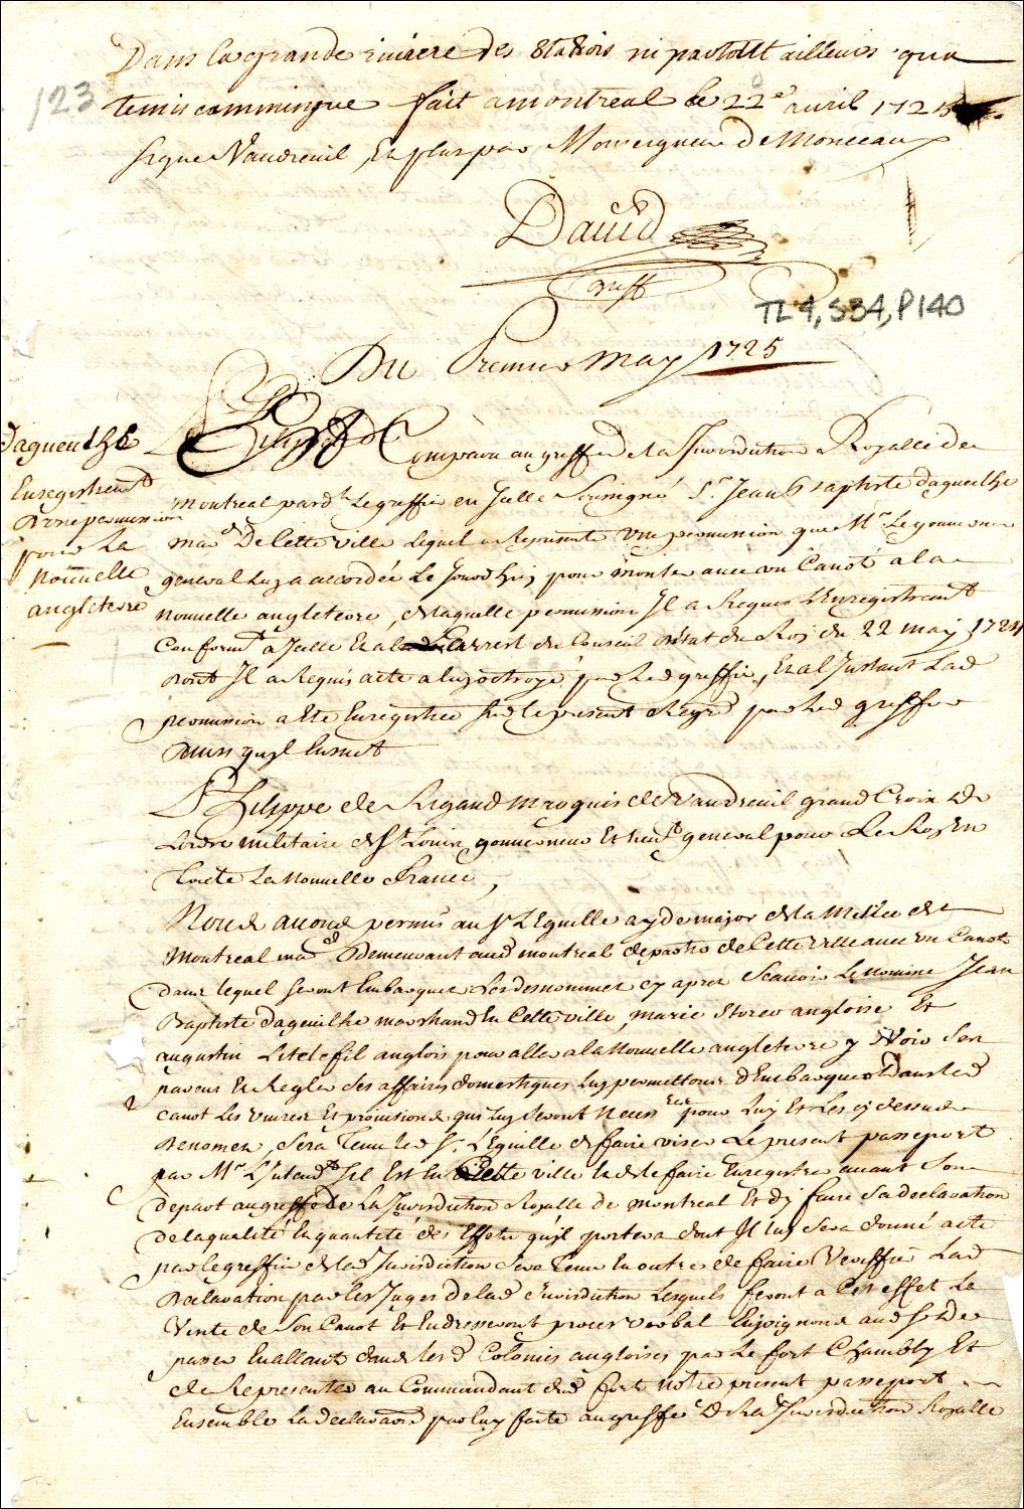 Dans la grande riviere des 8ta8ois ni partoutt ailleurs qua
123
temiscammingue fait a montreal le 22e avril 1725
signe Vaudreuil, Et plus par Monseigneur De Monceaux
David
Greff
TL4, S34, P140
Du Premier may 1725
Daguenlhe
Enregistremt
Dune permission
pour La
Nouvelle
angleterre
Comparu au greffe de la Jurisdiction Royalle de
montreal pardt Le greffier en Icelle Soussigné Sr. Jean Baptiste dagueilhe
mard De Cette ville Lequel a Represente Une permission que Mr Le gouverneur
general Luy a accordée Le Jourdhuy pour monter avec un Canot a la
nouvelle angleterre, de laquelle permission Il a Requis L'Enregistremt
Conformt a Icelle Et a Larrest du Conseil d'état du Roy du 22 may 1724
dont Il a Requis acte a luy octroyé par Led greffier, Et a l'Instant Lad
permission a Eté Enregistrée sur le present Regre par Led greffier
ainsi quil Ensuit
Philippe de Rigaud marquis de Vaudreuil grand Croix de
Lordre militaire de St Louis, gouverneur Et lieut general pour Le Roy En
toute La Nouvelle france,
Nous avons permis au Sr LEguille ayde major de la Milice de
Montreal mard Demeurant aud montreal de partir de Cette ville avec un Canot
dans lequel seront Embarquer Les denommez cy apres Scavoir Le nommé Jean
Baptiste dagueilhe marchand En Cette ville, marie Storer angloise Et
augustin Litelefil anglois pour aller a la Nouvelle angleterre y Voir Ses
parens Et Regler Ses affaires domestiques Luy permettons d'Embarquer Dans led
canot Les vivres Et provisions qui luy seront Necesres pour luy Et Les cy dessus
denomez, Sera Tenu led Sr. L'Eguille de faire viser Le present passeport
par Mr L'Intendt s'il Est En Cette ville Et de le faire Enregistrer avant Son
depart au greffe de La Jurisdiction Royalle de montreal Et d'y faire Sa declaration
de la qualité Et quantité des Effets qu'il portera dont Il luy sera donné acte
par le greffier de lad Jurisdiction Sera Tenu En outre de faire Veriffier Lad
declaration par les Juges de lad Jurisdiction Lesquels feront a Cet effet La
Visite de Son Canot Et En dresseront procez verbal Enjoignons aud Sr De
passer En allant dans lesd Colonies angloises par Le fort Chambly Et
de Representer au Commandant dud fort notre present passeport
Ensemble La declaraon par luy faite au greffe De lad Jurisdiction Royalle